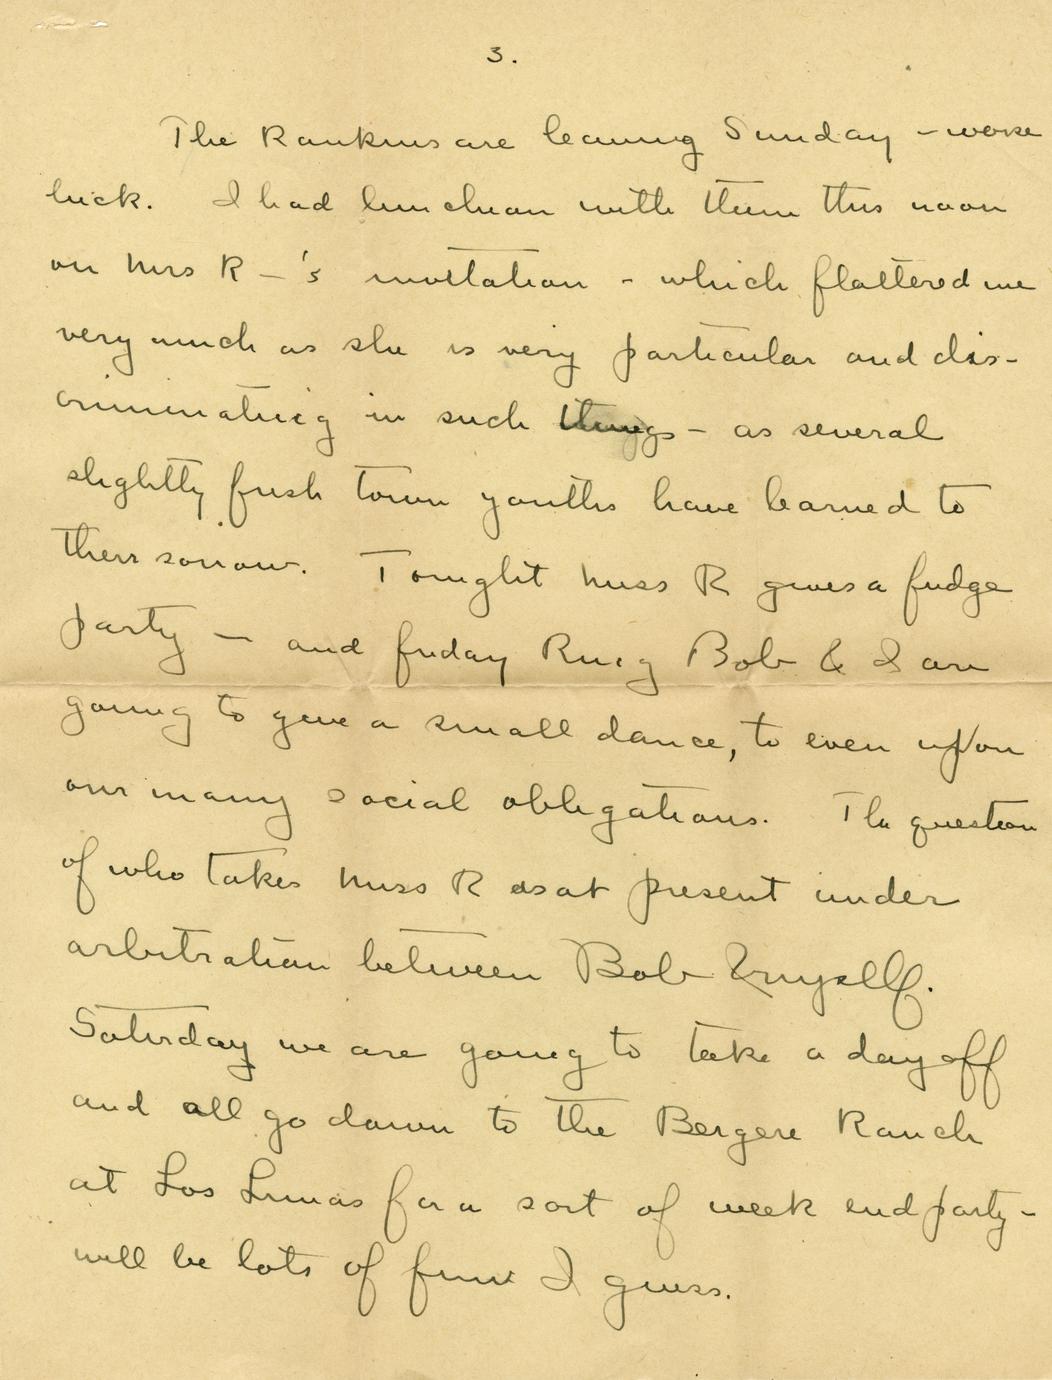 3.
The Rankins are leaving Sunday - worse
luck. I had luncheon with them this noon
on Mrs R - 's invitation - which flattered me
very much as she is very particular and dis-
criminating in such things - as several
slightly fresh town youths have learned to
their sorrow. Tonight Miss R gives a fudge
party — and friday Ring Bob & I are
going to give a small dance, to even up on
our many social obligations. The question
of who takes Miss R is at present under
arbitration between Bob & myself.
Saturday we are going to take a day off
and all go down to the Bergere Ranch
at Los Lunas for a sort of week end party -
will be lots of fun I guess.